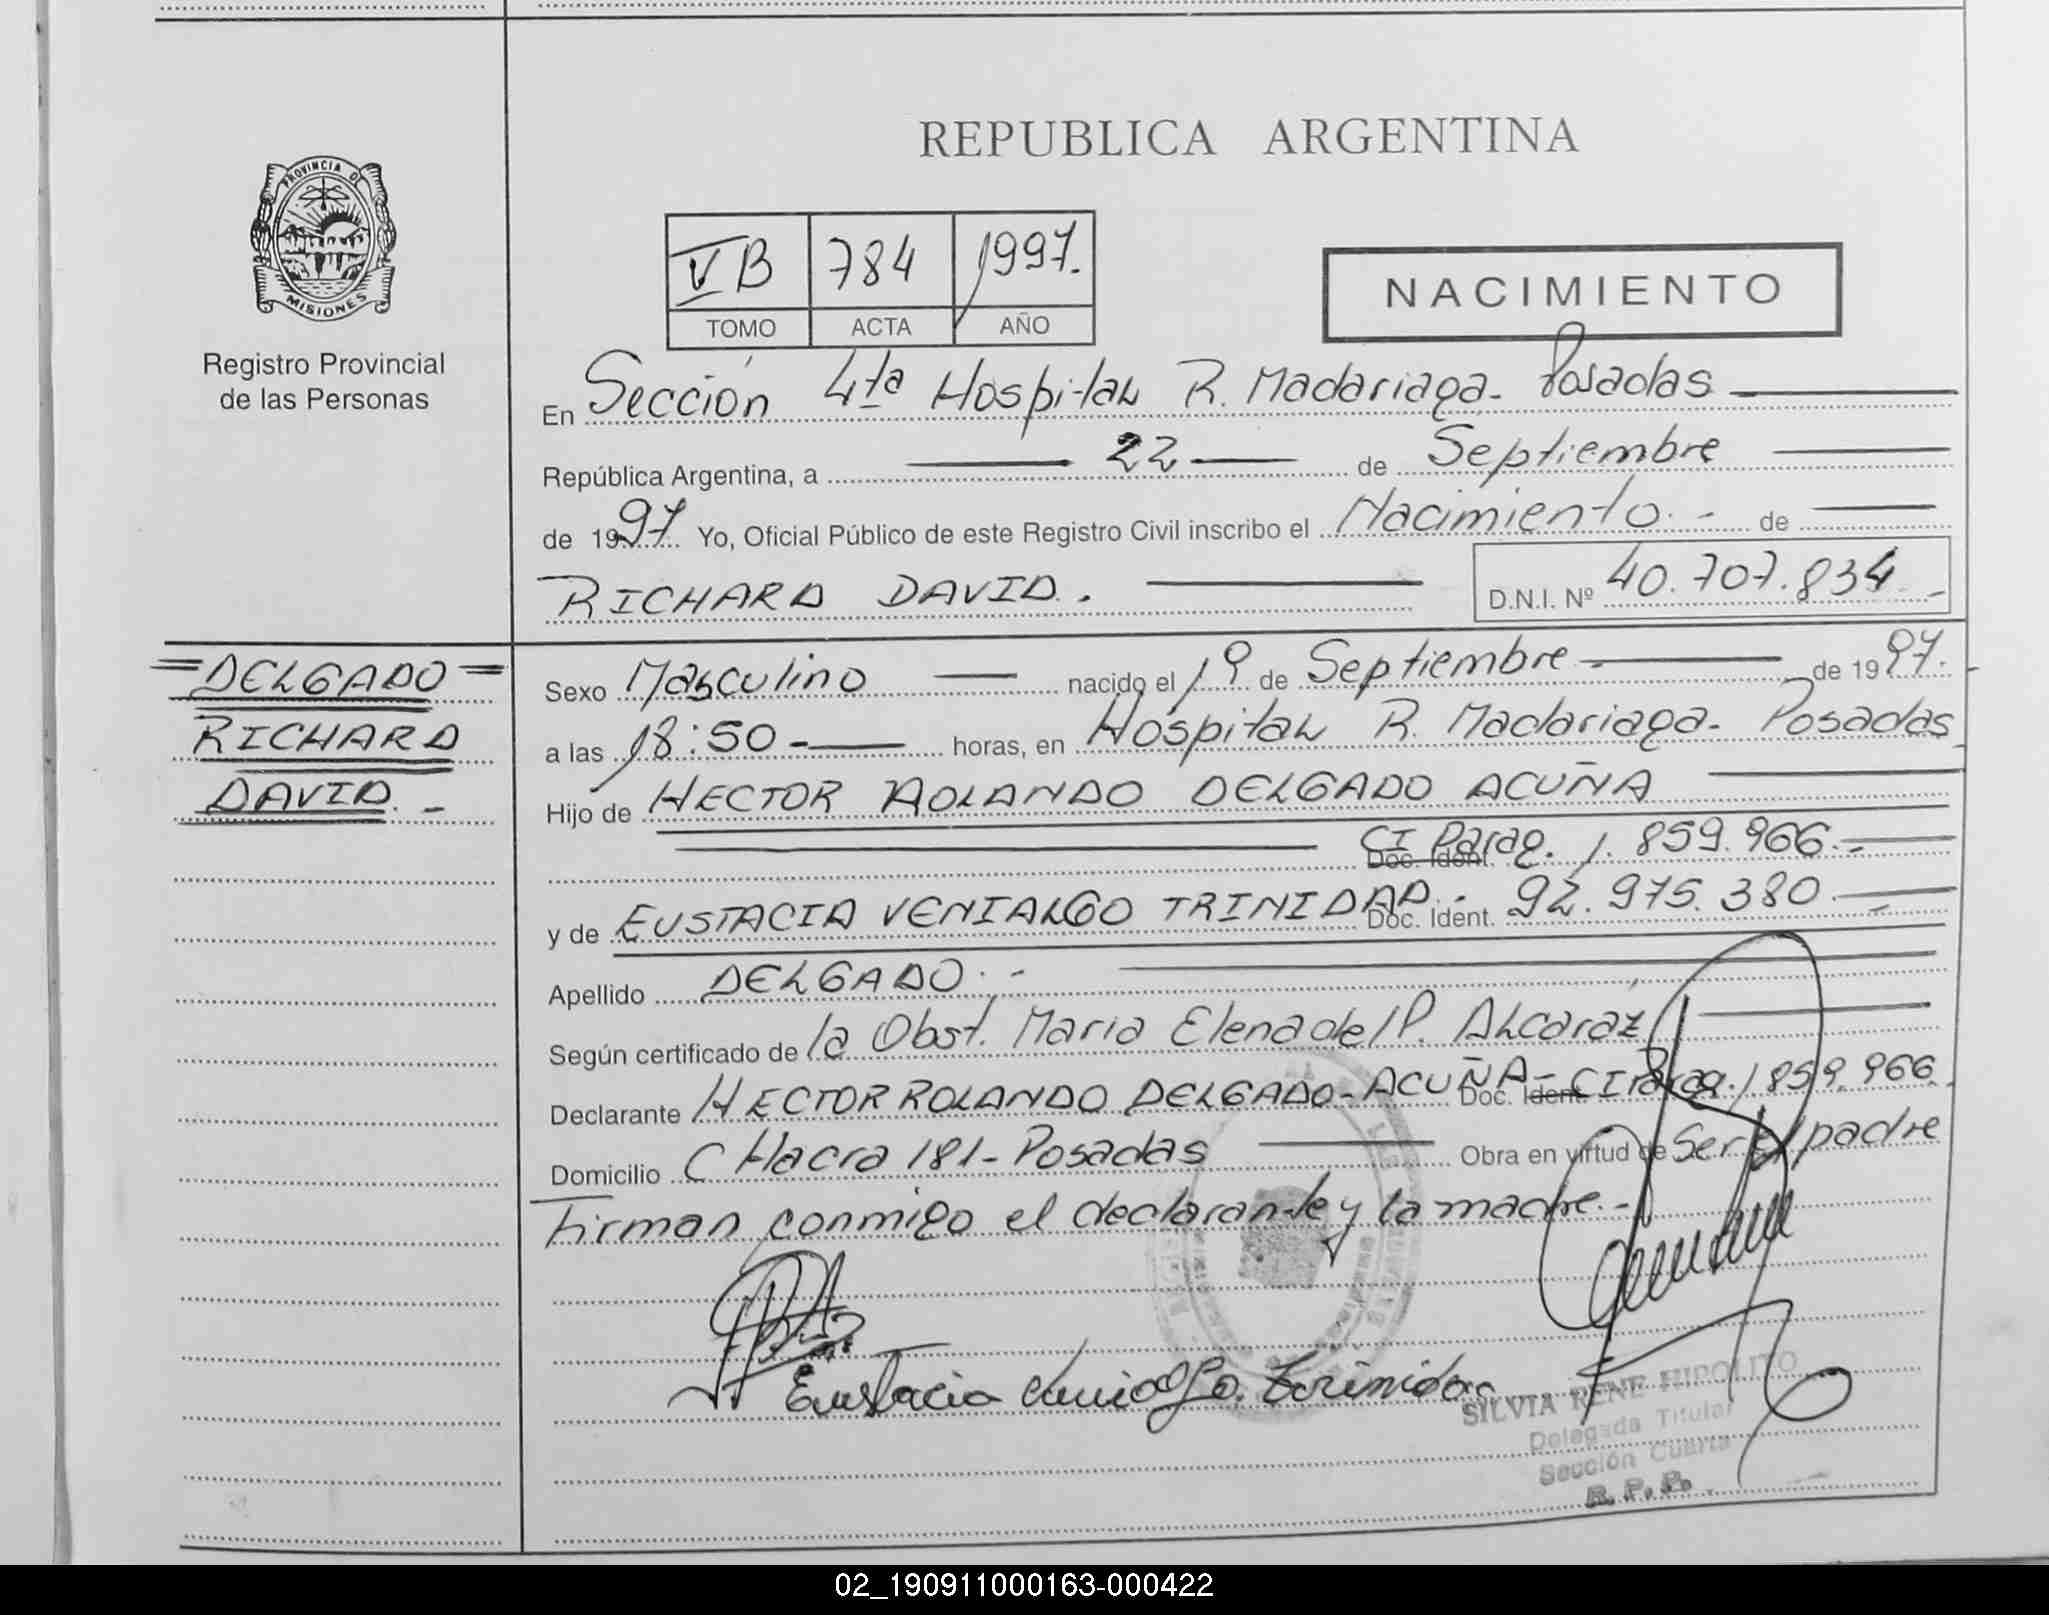 REPUBLICA ARGENTINA
PROVINCIA DE
MISIONES
Registro Provincial
de las Personas
VB 784 1997.
TOMO ACTA AÑO
NACIMIENTO
En Sección 4ta Hospital R. Madariaga - Posadas
República Argentina, a 22 de Septiembre
de 1997 Yo, Oficial Público de este Registro Civil inscribo el Nacimiento.- de
RICHARD DAVID. D.N.I. Nº 40.707.834.-
=DELGADO=
RICHARD
DAVID.-
Sexo Masculino nacido el 19 de Septiembre de 1997.
a las 18:50- horas, en Hospital R. Madariaga - Posadas
Hijo de HECTOR ROLANDO DELGADO ACUÑA
Doc. Ident. CI Parag. 1.859.966.-
y de EUSTACIA VENIALGO TRINIDAD.- Doc. Ident. 92.975.380.-
Apellido DELGADO.-
Según certificado de la Obst. Maria Elena del P. Alcaraz
Declarante HECTOR ROLANDO DELGADO-ACUÑA- Doc. Ident. CI Parag. 1859.966.
Domicilio CHacra 181- Posadas Obra en virtud de Ser el padre
Firman conmigo el declarante y la madre.-
Eustacia Trinidad
SILVIA RENE HIPOLITO
Delegada Titular
Sección Cuarta
R. P. P.
02_190911000163-000422